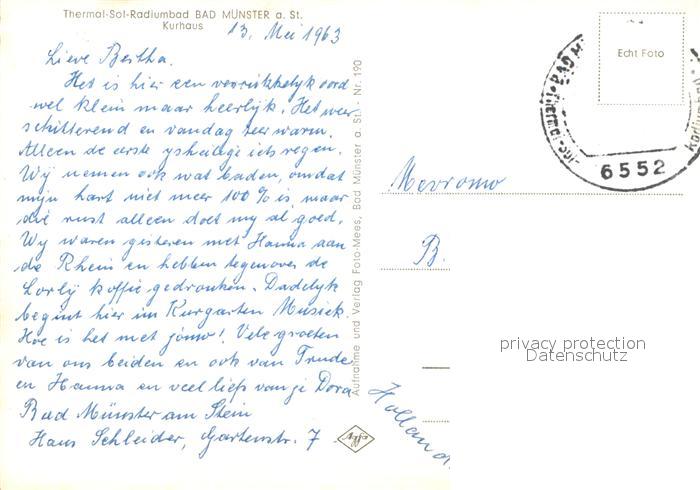 Thermal-Sol-Radiumbad BAD MÜNSTER a. St.
Kurhaus
13. Mei 1963
Lieve Bertha.
Het is hier een verrukkelyk oord
wel klein maar heerlijk. Het weer
schitterend en vandag zeer warm.
Alleen de eerste ysheilige iets regen.
Wij nemen ook wat baden, omdat
mijn hart niet meer 100% is, maar
die rust alleen doet my al goed.
Wy waren gisteren met Hanna aan
de Rhein en hebben tegenover de
Lorlij koffie gedronken. Dadelyk
begint hier im Kurgarten Musiek.
Hoe is het met jouw! Vele groeten
van ons beiden en ook van Trude
en Hanna en veel liefs van je Dora
Bad Münster am Stein
Haus Schleider, Gartenstr. 7
Aufnahme und Verlag Foto-Mees, Bad Münster a. St. - Nr. 190
Agfa
Echt Foto
BAD M
Thermal-Sol-
Radium
6552
Mevrouw
B.
Holland
privacy protection
Datenschutz